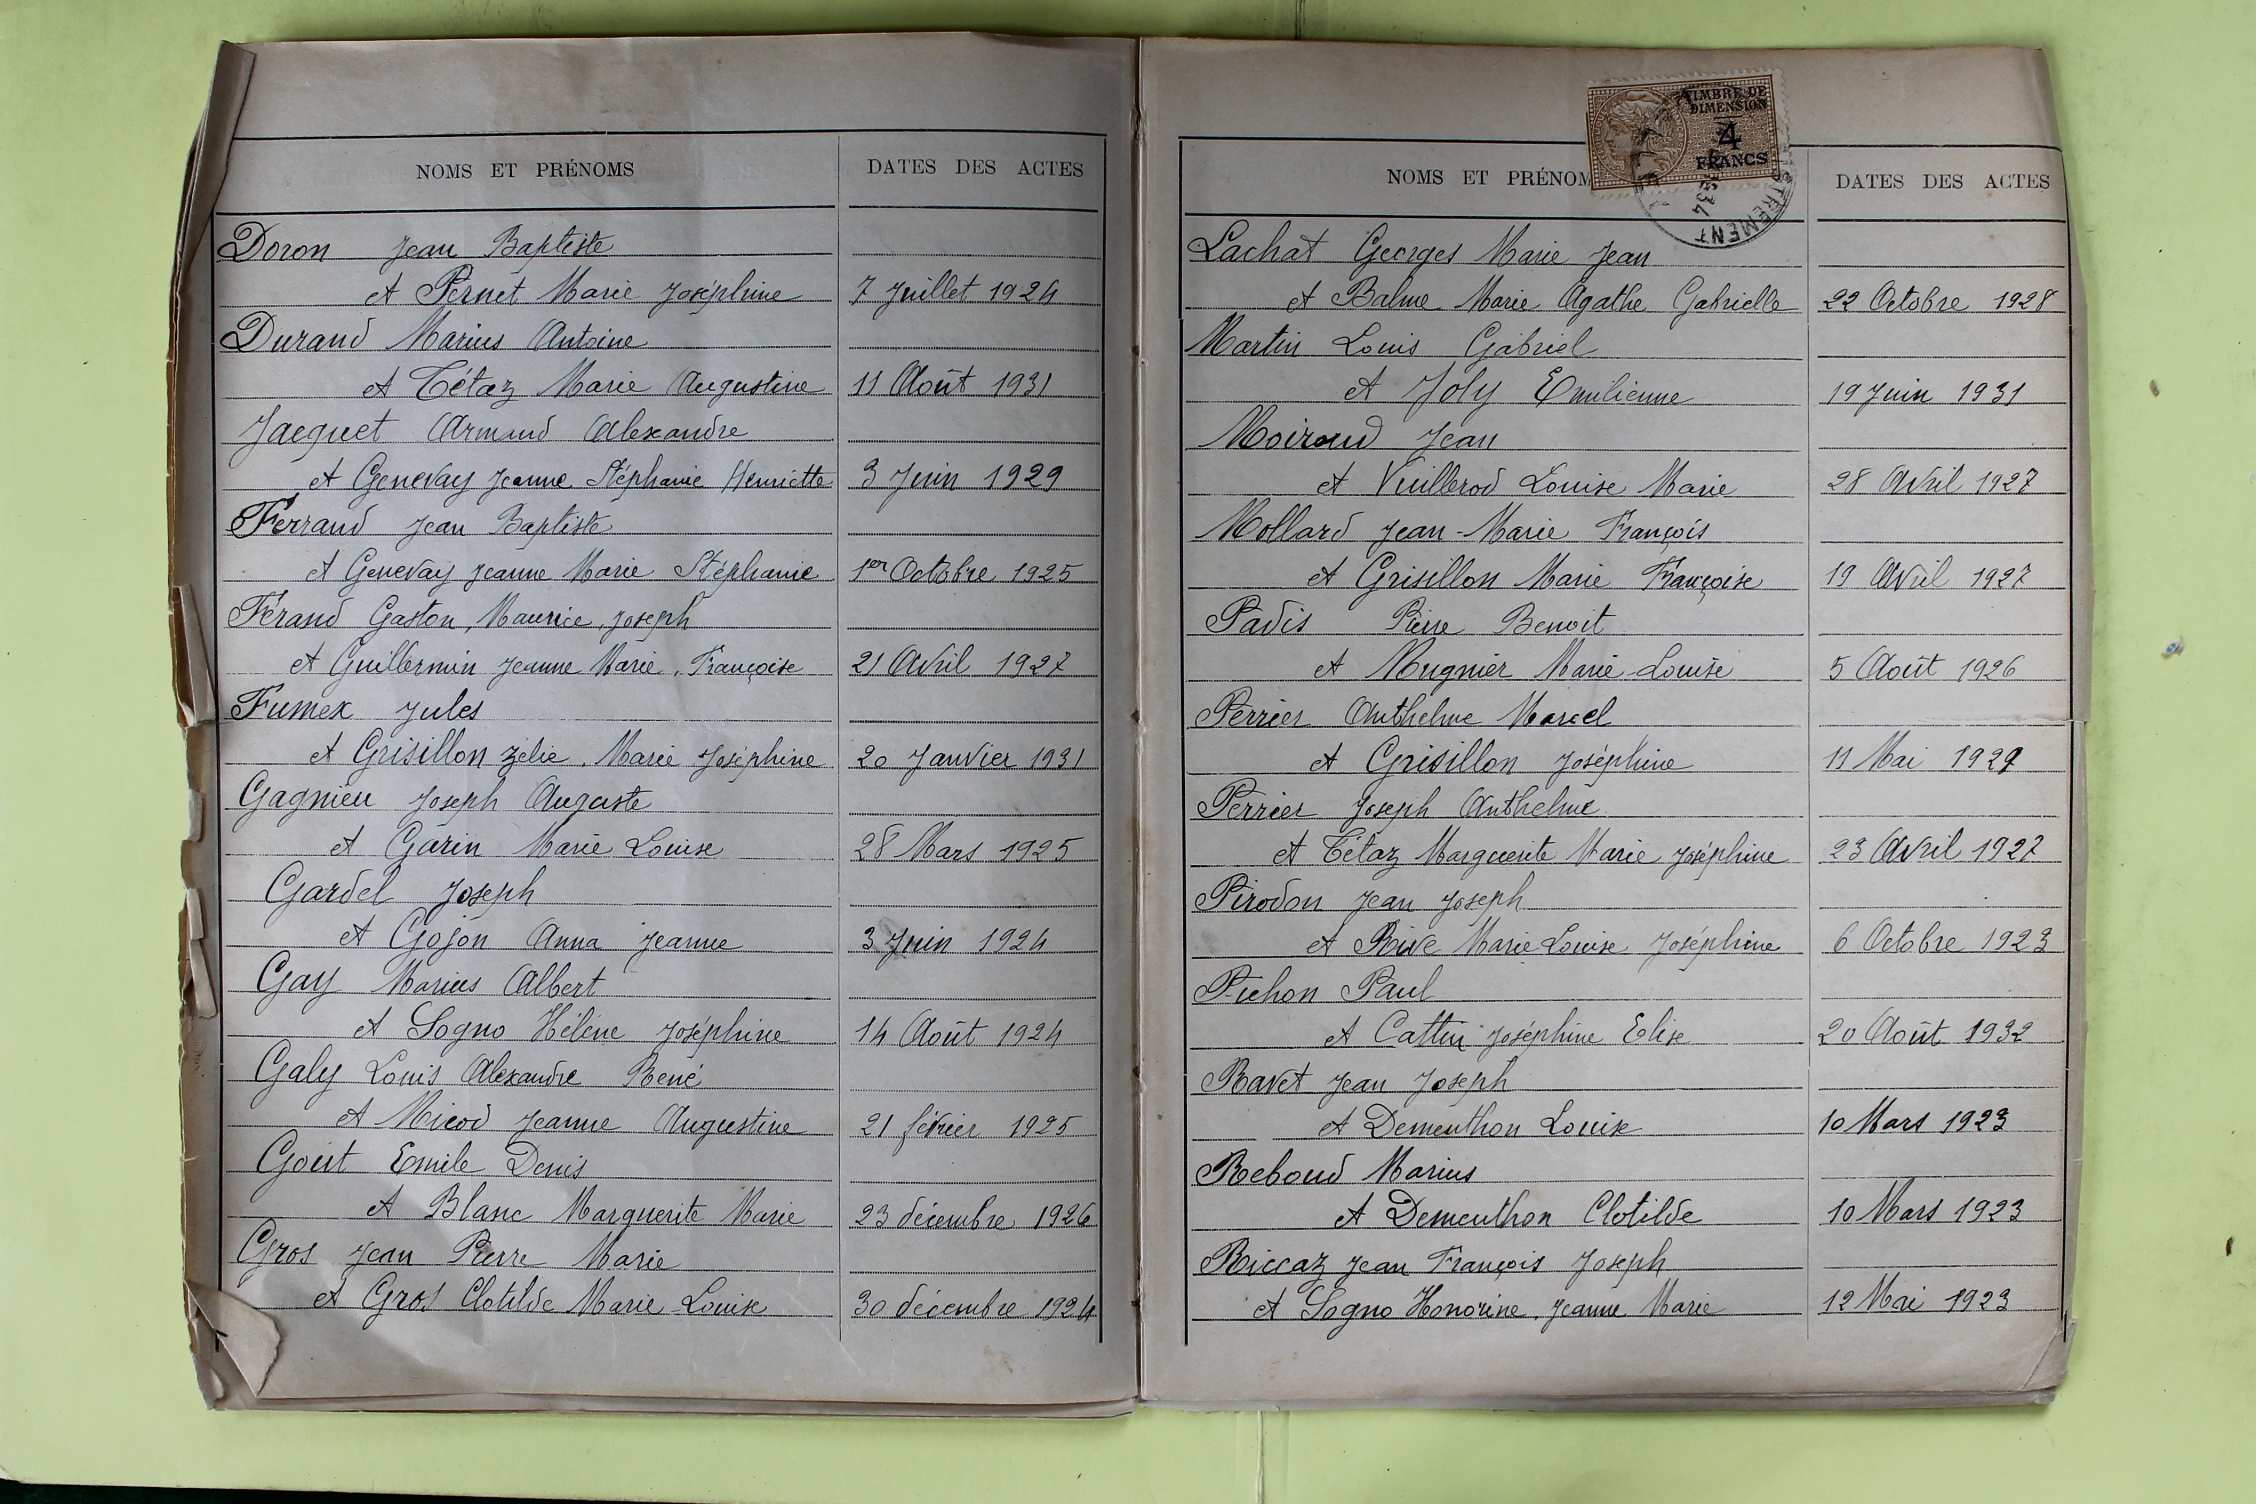 NOMS ET PRÉNOMS DATES DES ACTES
Doron Jean Baptiste
et Pernet Marie Joséphine 7 Juillet 1924
Durand Marius Antoine
et Tétaz Marie Augustine 11 Août 1931
Jacquet Armand Alexandre
et Genevay Jeanne Stéphanie Henriette 3 Juin 1929
Ferrand Jean Baptiste
et Genevay Jeanne Marie Stéphanie 1er Octobre 1925
Férand Gaston, Maurice, Joseph
et Guillermin Jeanne Marie, Françoise 21 Avril 1927
Fumex Jules
et Grisillon Zélie, Marie Joséphine 20 Janvier 1931
Gagnieu Joseph Auguste
et Garin Marie Louise 28 Mars 1925
Gardel Joseph
et Gojon Anna Jeanne 3 Juin 1924
Gay Marius Albert
et Sogno Hélène Joséphine 14 Août 1924
Galy Louis Alexandre René
et Micod Jeanne Augustine 21 février 1925
Goût Emile Denis
et Blanc Marguerite Marie 23 décembre 1926
Gros Jean Pierre Marie
et Gros Clotilde Marie Louise 30 décembre 1924
TIMBRE DE
DIMENSION
4
FRANCS
NOMS ET PRÉNOM DATES DES ACTES
Lachat Georges Marie Jean
et Balme Marie Agathe Gabrielle 22 Octobre 1928
Martin Louis Gabriel
et Joly Emilienne 19 Juin 1931
Moiroud Jean
et Vuillerod Louise Marie 28 Avril 1927
Mollard Jean-Marie François
et Grisillon Marie Françoise 19 Avril 1927
Padis Pierre Benoit
et Mugnier Marie-Louise 5 Août 1926
Perrier Anthelme Marcel
et Grisillon Joséphine 11 Mai 1929
Perrier Joseph Anthelme
et Tétaz Marguerite Marie Joséphine 23 Avril 1927
Pirodon Jean Joseph
et Rive Marie Louise Joséphine 6 Octobre 1923
Pichon Paul
et Cattin Joséphine Elise 20 Août 1932
Ravet Jean Joseph
et Dementhon Louise 10 Mars 1923
Reboud Marius
et Dementhon Clotilde 10 Mars 1923
Riccaz Jean François Joseph
et Sogno Honorine, Jeanne Marie 12 Mai 1923